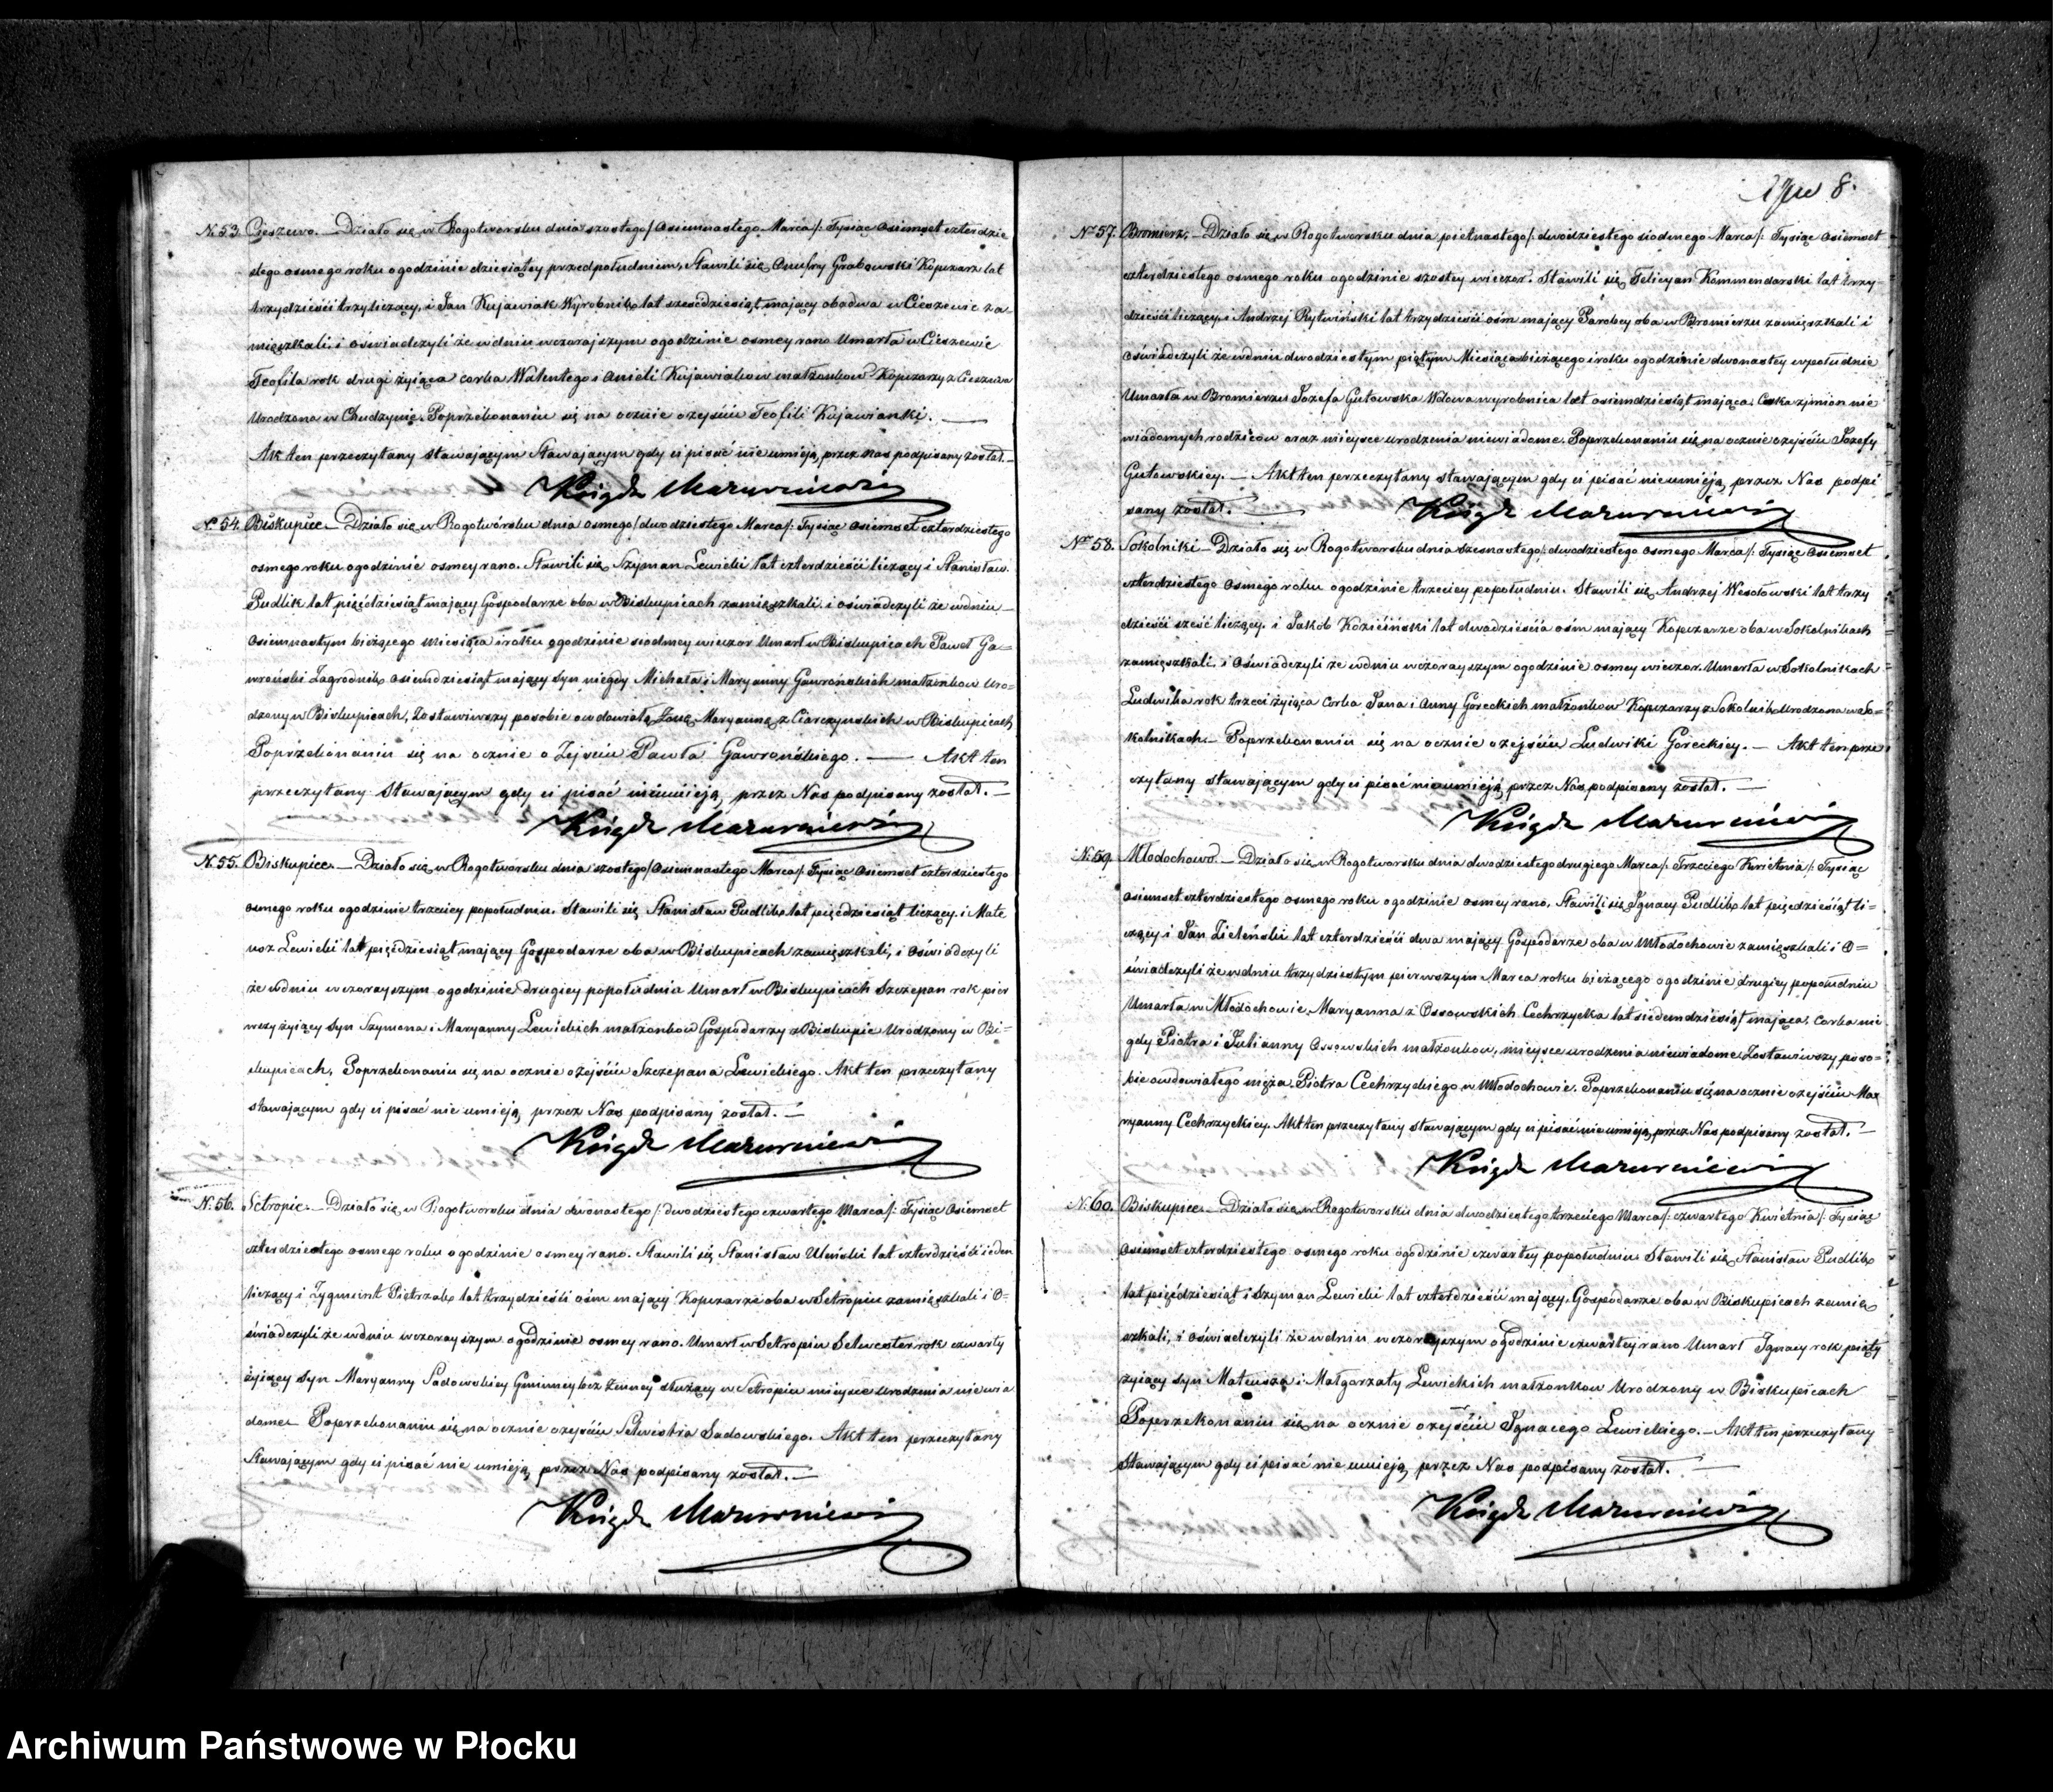 N. 53. Cieszewo. — Działo się w Rogotworsku dnia szóstego /: Osiemnastego Marca /: Tysiąc Osiemset czterdzie
stego osmego roku o godzinie dziesiątey przedpołudniem, Stawili się Onufry Grabowski Kopczarz lat
trzydzieści trzy liczący, i Jan Kujawiak Wyrobnik lat sześćdziesiąt mający obadwa w Cieszewie za=
mięszkali, i oświadczyli że w dniu wczorajszym o godzinie osmey rano Umarła w Cieszewie
Teofila rok drugi żyjąca corka Walentego i Anieli Kujawiakow małżonkow Kopczarzy z Cieszewa
Urodzona w Chudzynie. Poprzekonaniu się na ocznie o zejściu Teofili Kujawianki. —
Akt ten przeczytany stawającym Stawającym gdy ci pisać nie umieją, przez nas podpisany został. —
Ksiądz Mazurniewicz
N. 54. Biskupice. Działo się w Rogotwórsku dnia osmego /: dwudziestego Marca /: Tysiąc Osiemset czterdziestego
osmego roku o godzinie osmey rano. Stawili się Szyman Lewicki lat czterdzieści liczący i Stanisław
Pudlik lat pięćdziesiąt mający Gospodarze oba w Biskupicach zamięszkali, i oświadczyli że w dniu —
Osiemnastym bieżącego miesiąca i roku o godzinie siodmey wieczor Umarł w Biskupicach Paweł Ga=
wroński Zagrodnik osiemdziesiąt mający syn niegdy Michała i Maryanny Gawrońskich małżonkow uro=
dzony w Biskupicach, Zostawiwszy posobie owdowiałą Żonę Maryannę z Ciarczyńskich w Biskupicach
Poprzekonaniu się na ocznie o Zejściu Pawła Gawrońskiego. — Akt ten
przeczytany Stawającym gdy ci pisać nieumieją, przez Nas podpisany został. —
Ksiądz Mazurniewicz
N. 55. Biskupice. — Działo się w Rogotworsku dnia szostego /: Osiemnastego Marca /: Tysiąc Osiemset czterdziestego
osmego roku o godzinie trzeciey popołudniu. Stawili się Stanisław Pudlik lat pięćdziesiąt liczący, i Mate
usz Lewicki lat pięćdziesiąt mający Gospodarze oba w Biskupicach zamięszkali, i oświadczyli
że w dniu wczorayszym o godzinie drugiey popołudniu Umarł w Biskupicach Szczepan rok pier
wszy żyjący syn Szymona i Maryanny Lewickich małżonkow Gospodarzy z Biskupic Urodzony w Bi=
skupicach, Poprzekonaniu się na ocznie o zejściu Szczepana Lewickiego. Akt ten przeczytany
stawającym gdy ci pisać nie umieją, przez Nas podpisany został. —
Ksiądz Mazurniewicz
N. 56. Setropie. — Działo się w Rogotworsku dnia dwonastego /: dwódziestego czwartego Marca /: Tysiąc Osiemset
czterdziestego osmego roku o godzinie osmey rano. Stawili się Stanisław Uliński lat czterdzieści ieden
liczący i Zygmunt Pietrzak lat trzydzieści ośm mający Kopczarze oba w Setropiu zamięszkali i O=
świadczyli że w dniu wczorayszym o godzinie osmey rano. Umarł w Setropiu Selwester rok czwarty
żyiący syn Maryanny Sadowskiey Gminney bez żenney służący w Setropiu mieysce urodzenia niewia
dome. Poprzekonaniu się na ocznie o zejściu Selwestra Sadowskiego. Akt ten przeczytany
Stawającym gdy ci pisać nie umieją, przez Nas podpisany został. —
Ksiądz Mazurniewicz
8.
Nr 57. Bromierz. — Działo się w Rogotworsku dnia pietnastego /: dwódziestego siodmego Marca /: Tysiąc Osiemset
czterdziestego osmego roku o godzinie szostey wieczor. Stawili się Felicyan Kommendarski lat trzy
dzieści liczący, i Andrzej Rytwiński lat trzydzieści ośm mający Parobcy oba w Bromierzu zamięszkali i
Oświadczyli że w dniu dwodziestym piątym Miesiąca bieżącego i roku o godzinie dwonastey w południe
Umarła w Bromierzu Jozefa Gutowska Wdowa wyrobnica lat osiemdziesiąt mająca, Corka z imion nie
wiadomych rodziców oraz mieysce urodzenia niewiadome. Poprzekonaniu się na ocznie o zejściu Jozefy
Gutowskiey. — Akt ten przeczytany stawającym gdy ci pisać nieumieją, przez Nas podpi
sany został. —
Ksiądz Mazurniewicz
Nr 58. Sokolniki — Działo się w Rogotworsku dnia szesnastego /: dwodziestego Osmego Marca /: Tysiąc Osiemset
czterdziestego Osmego roku o godzinie trzeciey popołudniu. Stawili się Andrzej Wesołowski lat trzy
dzieści sześć liczący, i Jakób Koziciński lat dwadzieścia ośm mający Kopczarze oba w Sokolnikach
zamięszkali, i Oświadczyli że w dniu wczorayszym o godzinie osmey wieczor. Umarła w Sokolnikach
Ludwika rok trzeci żyiąca Corka Jana i Anny Goreckich małżonkow Kopczarzy z Sokolnik Urodzona w So=
kolnikach. — Poprzekonaniu się na ocznie o zejściu Ludwiki Goreckiey. — Akt ten prze
czytany stawającym gdy ci pisać nieumieją, przez Nas podpisany został. —
Ksiądz Mazurniewicz
N. 59. Młodochowo. — Działo się w Rogotworsku dnia dwodziestego drugiego Marca /: Trzeciego Kwietnia /: Tysiąc
osiemset czterdziestego osmego roku o godzinie osmey rano, Stawili się Ignacy Pudlik lat pięćdziesiąt li=
czący i Jan Zieleński lat czterdzieści dwa mający Gospodarze oba w Młodochowie zamięszkali i O=
świadczyli że w dniu trzydziestym pierwszym Marca roku bieżącego o godzinie drugiey popołudniu
Umarła w Młodochowie Maryanna z Ossowskich Cechrzycka lat siedmdziesiąt mająca, corka nie
gdy Piotra i Julianny Ossowskich małżonkow, mieysce urodzenia niewiadome Zostawiwszy poso=
bie owdowiałego męża Piotra Cechrzyckiego w Młodochowie. Poprzekonaniu się na ocznie o zejściu Ma
ryanny Cechrzyckiey. Akt ten przeczytany stawającym gdy ci pisać nieumieją, przez Nas podpisany został. —
Ksiądz Mazurniewicz
N. 60. Biskupice. — Działo się w Rogotworsku dnia dwodziestego trzeciego Marca /: czwartego Kwietnia /: Tysiąc
Osiemset czterdziestego osmego roku o godzinie czwartey popołudniu Stawili się Stanisław Pudlik
lat pięćdziesiąt i Szyman Lewicki lat czterdzieści mający, Gospodarze oba w Biskupicach zamię
szkali, i oświadczyli że w dniu wczorayszym o godzinie czwartey rano Umarł Ignacy rok piąty
żyiący syn Mateusza i Małgorzaty Lewickich małżonkow Urodzony w Biskupicach
Poprzekonaniu się na ocznie o zejściu Ignacego Lewickiego. — Akt ten przeczytany
Stawającym gdy ci pisać nie umieją, przez Nas podpisany został. —
Ksiądz Mazurniewicz
Archiwum Państwowe w Płocku